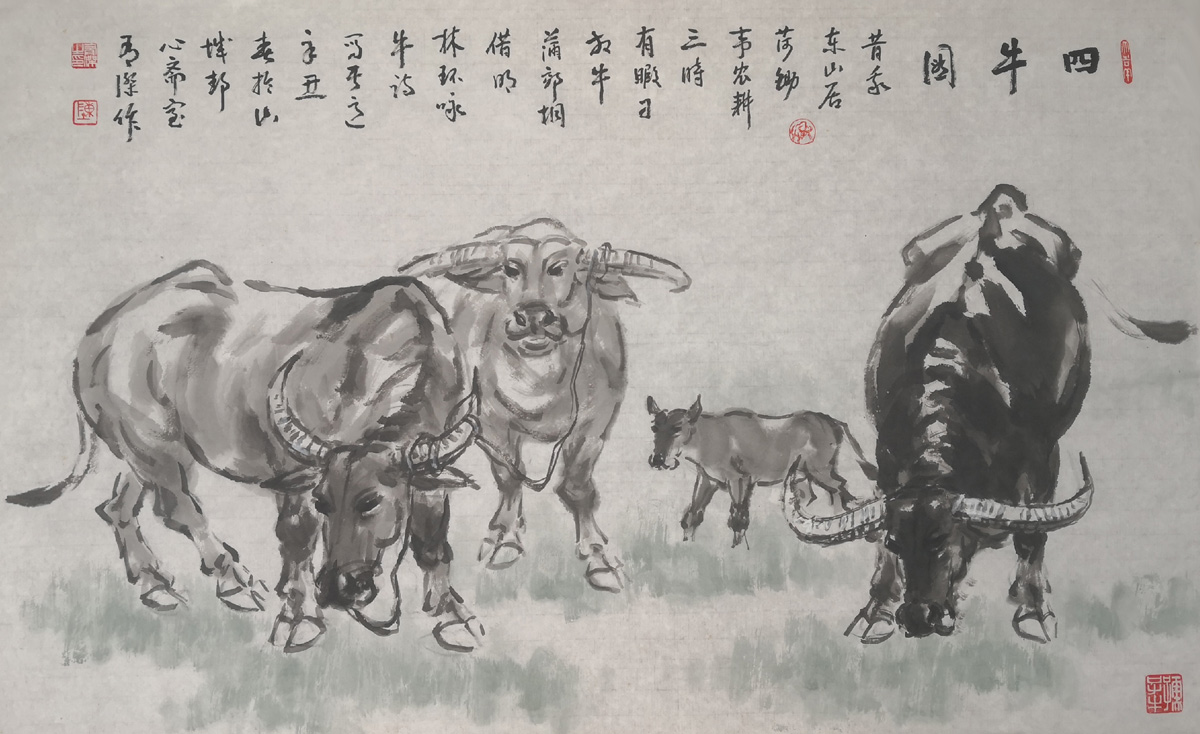 四牛图
昔我
东山居
荷锄
事农耕
三时
有暇日
放牛
蒲郭坰
借明
林环咏
牛诗
写其意
辛丑
春於山
城
心斋室
作